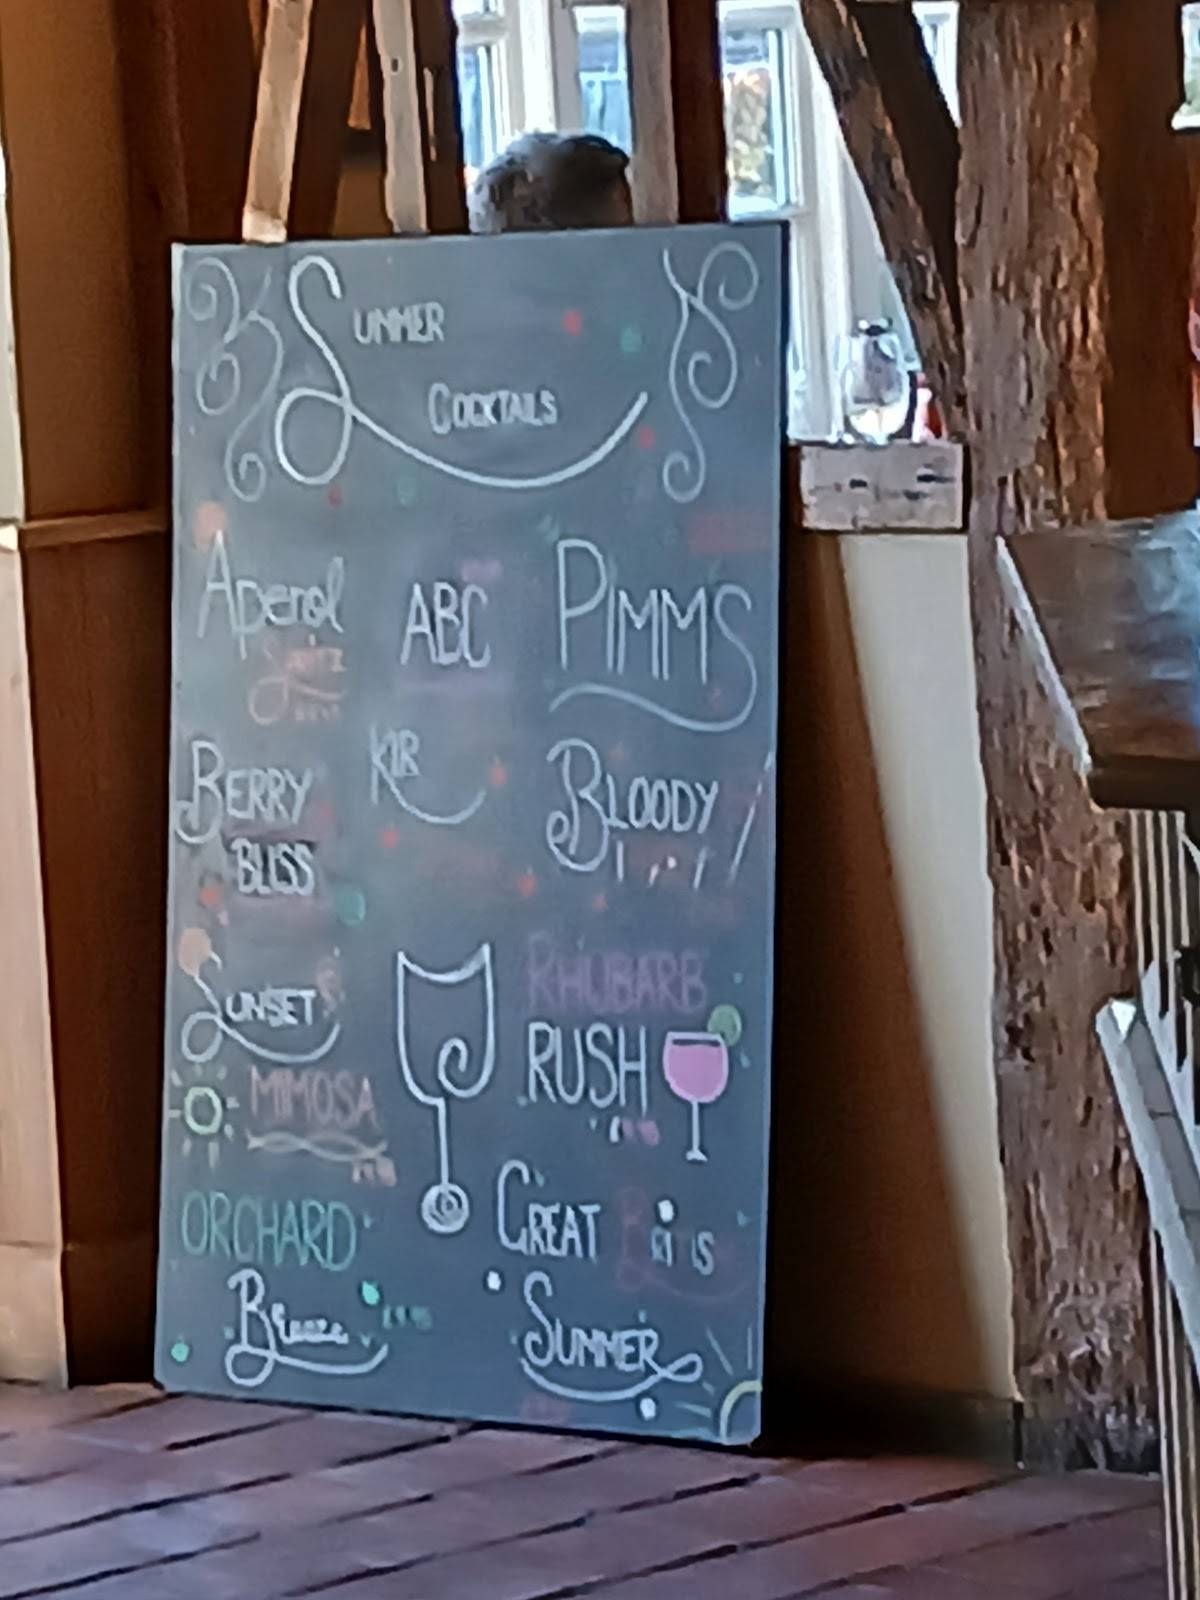 Summer
Cocktails
Aperol
Spritz
ABC
PIMMS
BERRY
BLISS
KIR
BLOODY
SUNSET
MIMOSA
RHUBARB
RUSH
ORCHARD
Breeze
GREAT
SUMMER